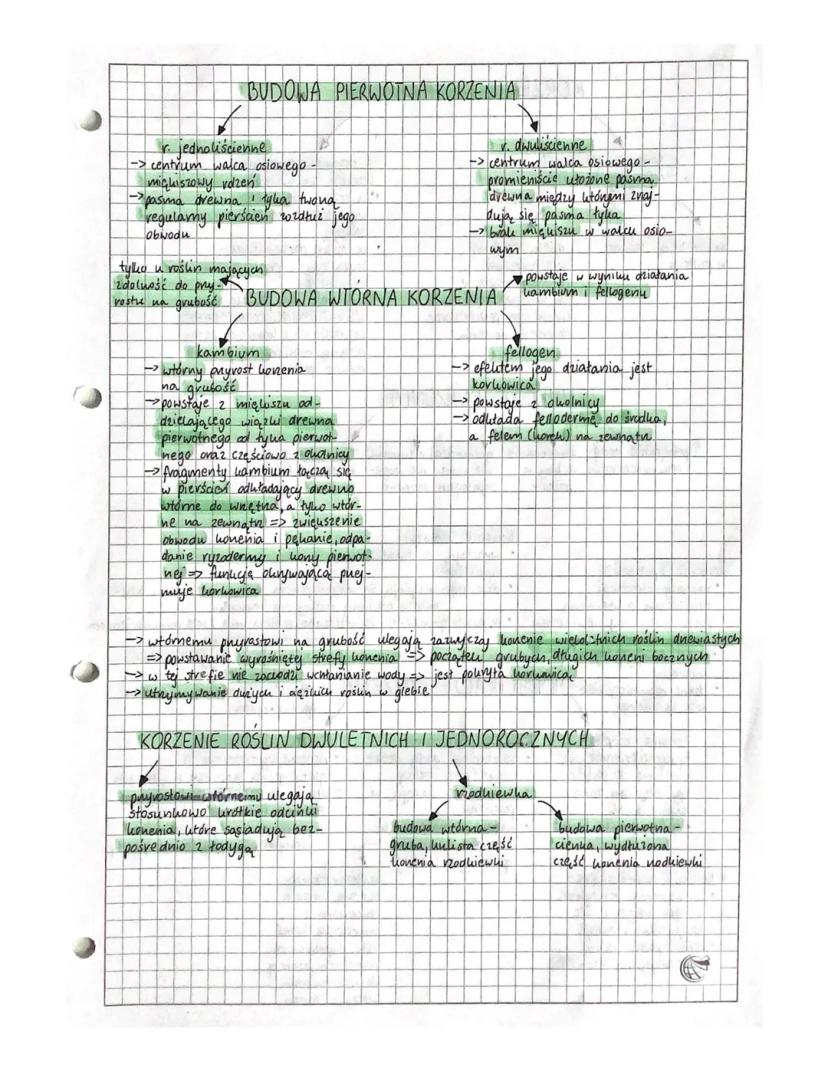 BUDOWA PIERWOTNA KORZENIA
r. jednoliścienne
-> centrum walca osiowego -
miękiszowy rdzeń
-> pasma drewna i łyka tworzą
regularny pierścień wzdłuż jego
obwodu
r. dwuliścienne
-> centrum walca osiowego -
promieniście ułożone pasma
drewna między którymi znaj-
dują się pasma łyka
-> brak miękiszu w walcu osio-
wym
tylko u roślin mających
zdolność do przy-
rostu na grubość
BUDOWA WTÓRNA KORZENIA
powstaje w wyniku działania
kambium i fellogenu
kambium
-> wtórny przyrost korzenia
na grubość
-> powstaje z miękiszu od-
dzielającego wiązki drewna
pierwotnego od łyka pierwot-
nego oraz częściowo z okolnicy
-> fragmenty kambium łączą się
w pierścień odkładający drewno
wtórne do wnętrza, a łyko wtór-
ne na zewnątrz => zwiększenie
obwodu korzenia i pękanie, odpa-
danie ryzodermy i kory pierwot-
nej => funkcję okrywającą przej-
muje korkowica
fellogen
-> efektem jego działania jest
korkowica
-> powstaje z okolnicy
-> odkłada fellodermę do środka,
a felem (korek) na zewnątrz
-> wtórnemu przyrostowi na grubość ulegają zazwyczaj korzenie wieloletnich roślin drzewiastych
=> powstawanie wyrośniętej strefy korzenia => początek grubych, długich korzeni bocznych
-> w tej strefie nie zachodzi wchłanianie wody => jest pokryta korkowicą
-> utrzymywanie dużych i ciężkich roślin w glebie
KORZENIE ROŚLIN DWULETNICH I JEDNOROCZNYCH
przyrostowi wtórnemu ulegają
stosunkowo krótkie odcinki
korzenia, które sąsiadują bez-
pośrednio z łodygą
rzodkiewka
budowa wtórna -
gruba, kulista część
korzenia rzodkiewki
budowa pierwotna -
cienka, wydłużona
część korzenia rzodkiewki